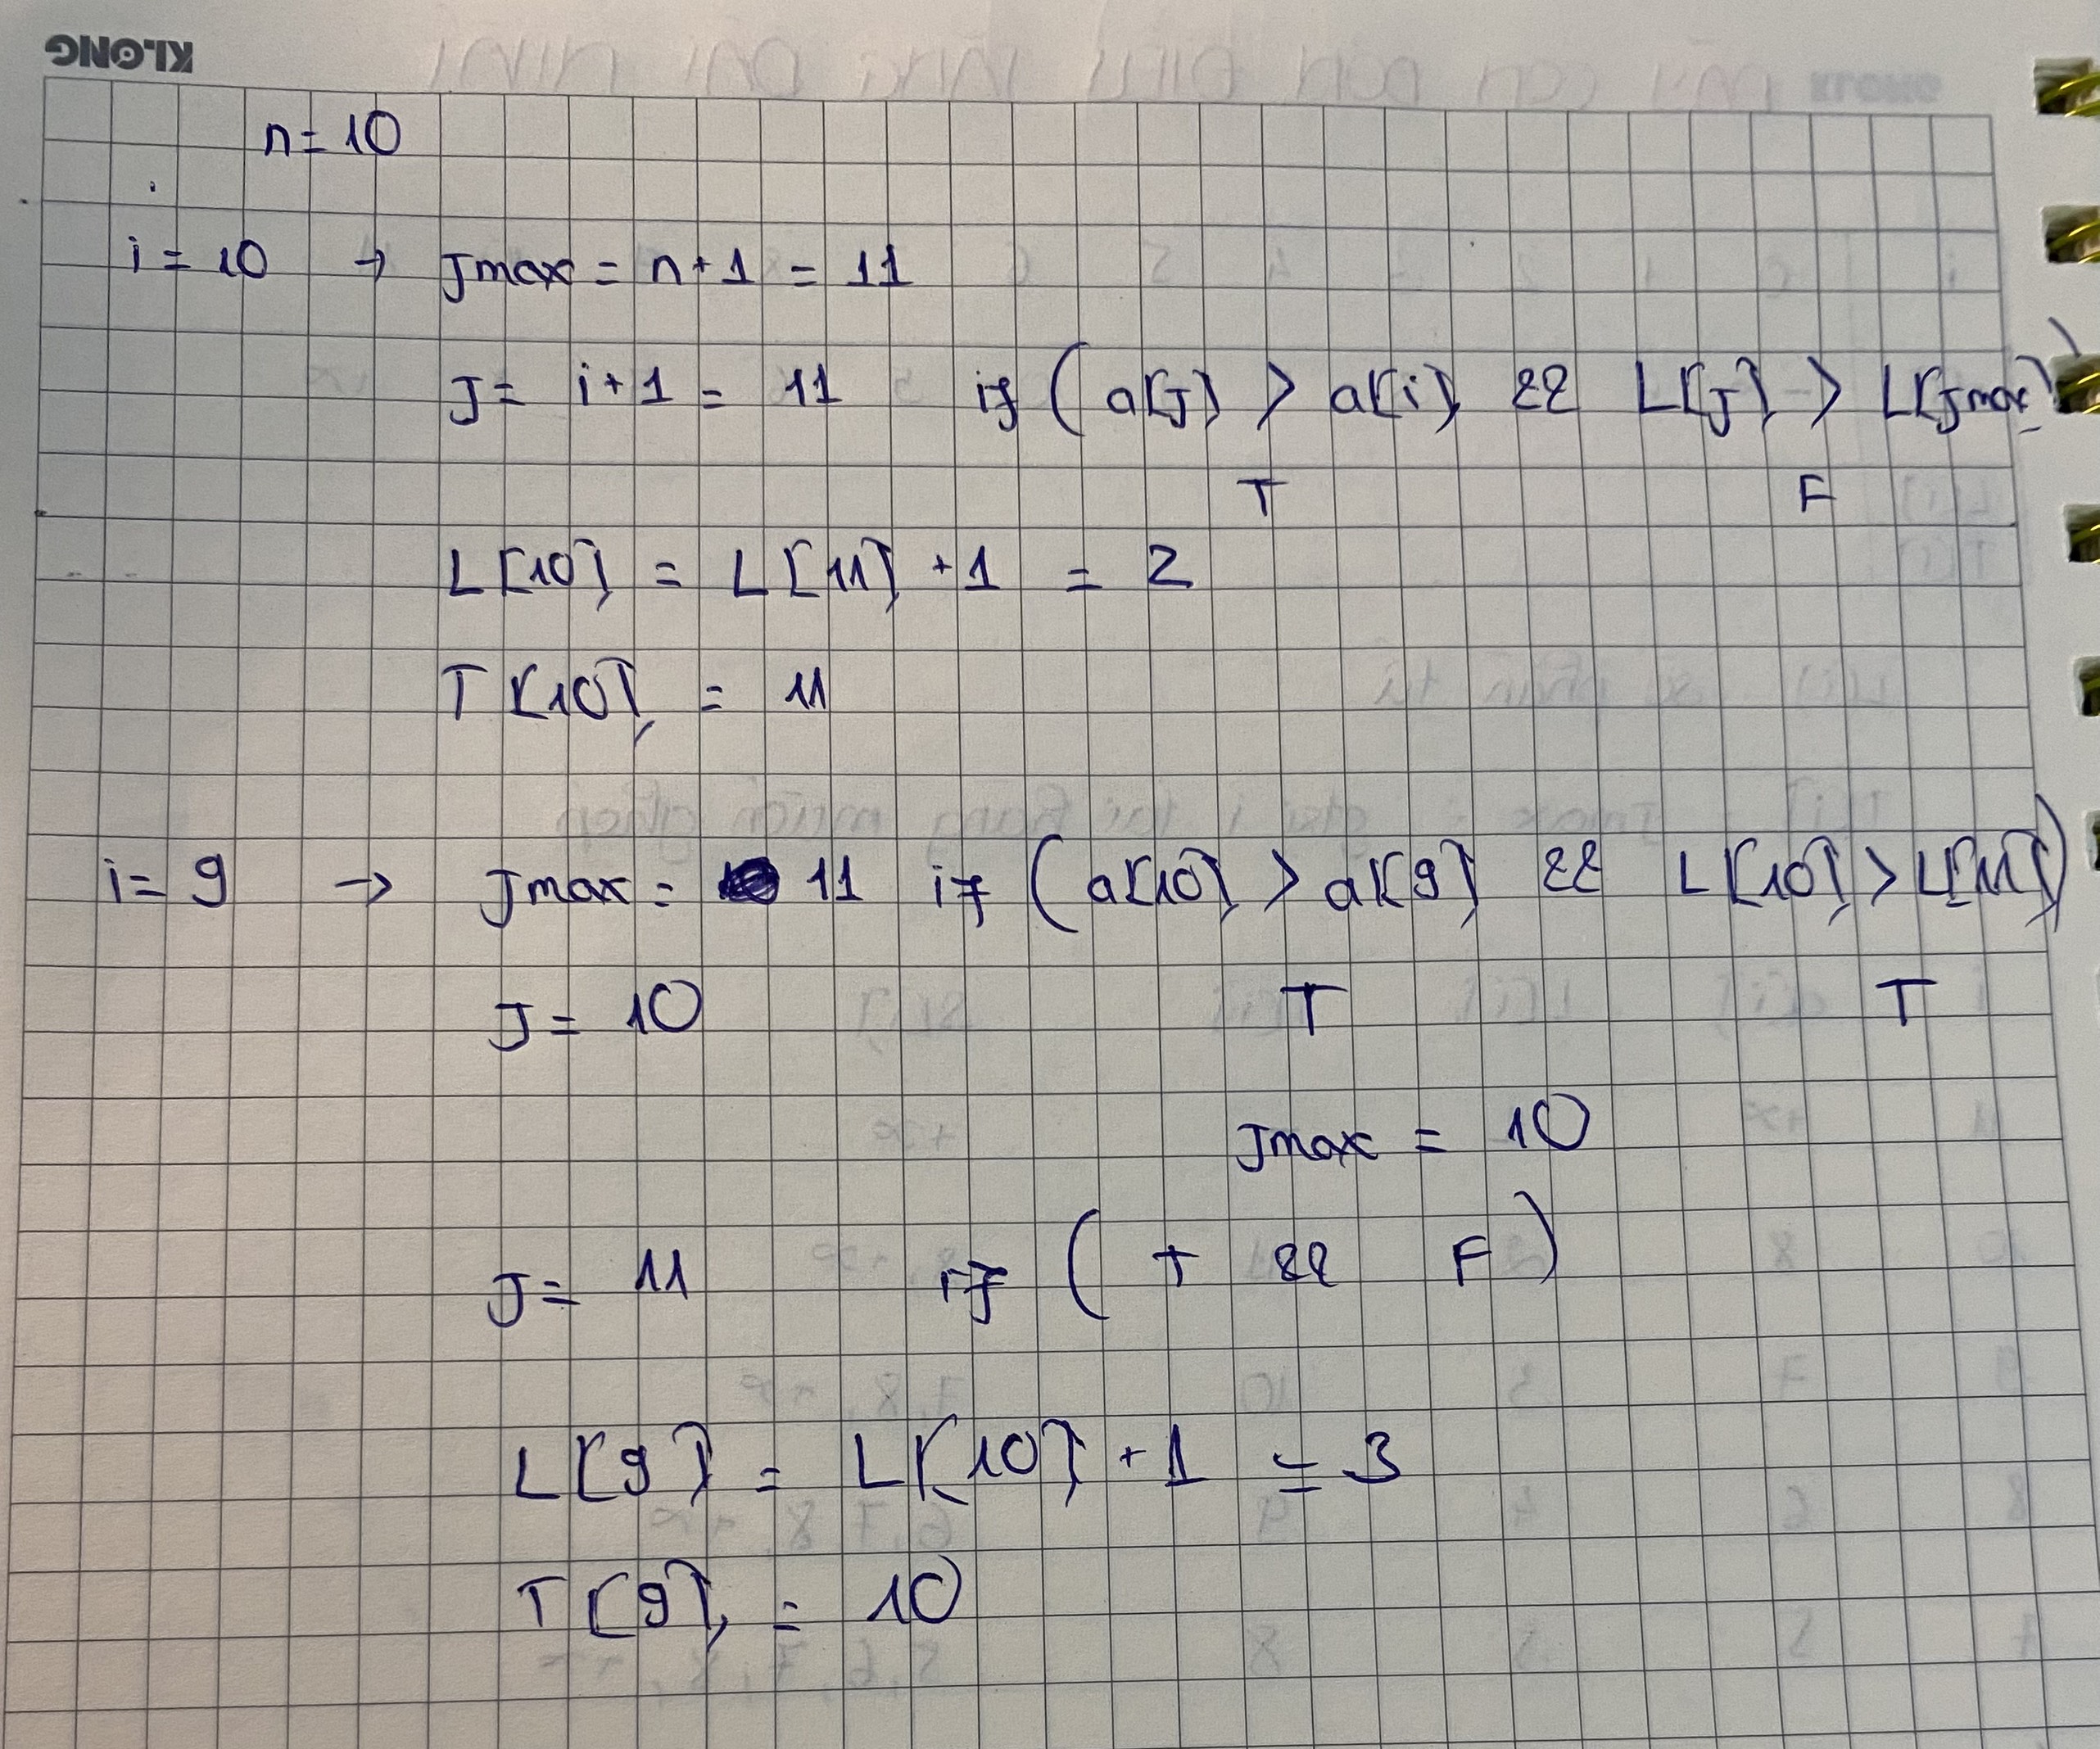 KLONG
n = 10
i = 10 → Jmax = n + 1 = 11
J = i + 1 = 11 if ( a[J] > a[i] && L[J] > L[Jmax] )
T F
L[10] = L[11] + 1 = 2
T[10] = 11
i = 9 → Jmax = 11 if ( a[10] > a[9] && L[10] > L[11] )
J = 10 T T
Jmax = 10
J = 11 if ( T && F )
L[9] = L[10] + 1 = 3
T[9] = 10